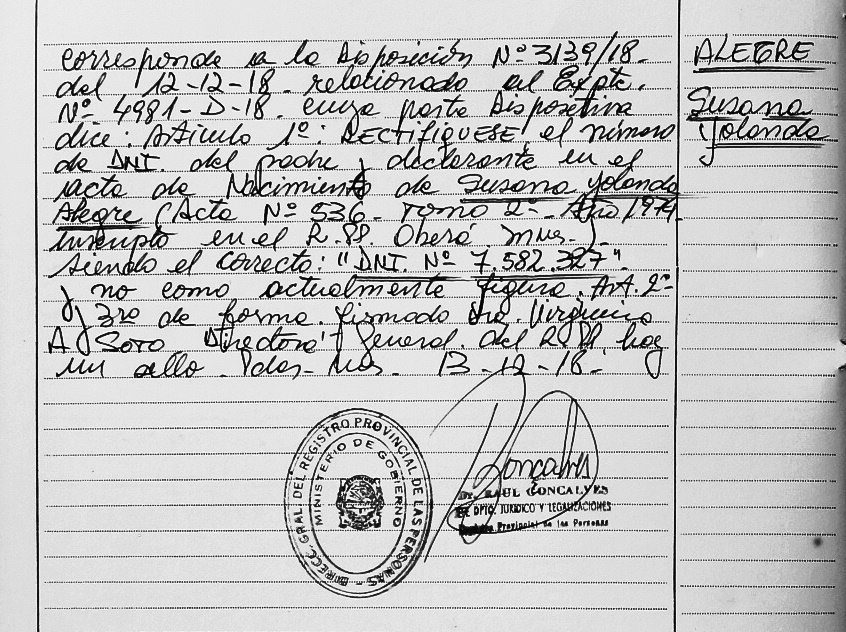 corresponde a la Disposición Nº 3139/18.
del 12-12-18. relacionado al Expte.
Nº 4981-D-18. cuya parte Dispositiva
dice: Artículo 1º: RECTIFIQUESE, el número
de DNI. del padre y declarante en el
acta de Nacimiento de Susana Yolanda
Alegre (Acta Nº 536. Tomo 2º- Año 1974.
Inscripto en el R.PP. Oberá Mnes-
siendo el correcto: "DNI. Nº 7.582.327".
y no como actualmente figura. Art. 2º-
y 3ro de forma. firmado Dra. Virginia
A Soto Directora General. del R.PP. hoy
un sello. Pdas. 13-12-18.
ALEGRE
Susana
Yolanda
DIRECC. GRAL. DEL REGISTRO PROVINCIAL DE LAS PERSONAS
MINISTERIO DE GOBIERNO
Goncalves
Dr. RAUL GONCALVES
DPTO. JURIDICO Y LEGALIZACIONES
Registro Provincial de las Personas